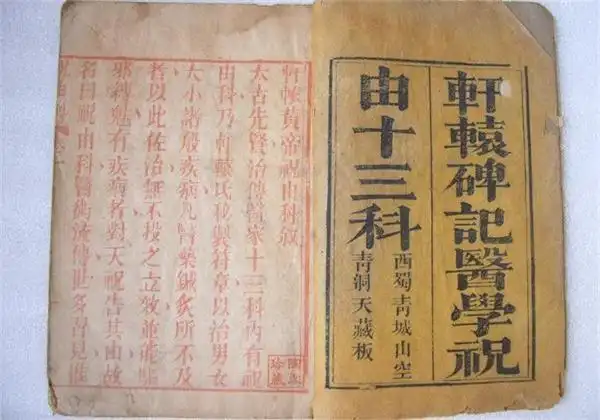 軒轅碑記醫學祝
由十三科
西蜀青城山空
青洞天藏板
軒轅黃帝祝由科敘
太古先賢治傳醫家十三科內有祝
由科乃軒轅氏秘製符章以治男女
大小諸般疾病凡醫藥鍼灸所不及
者以此佐治無不投之立效並能
邪 有疾病者對天祝告其由故
名曰祝由科醫術流傳世多罕見惟
珍藏